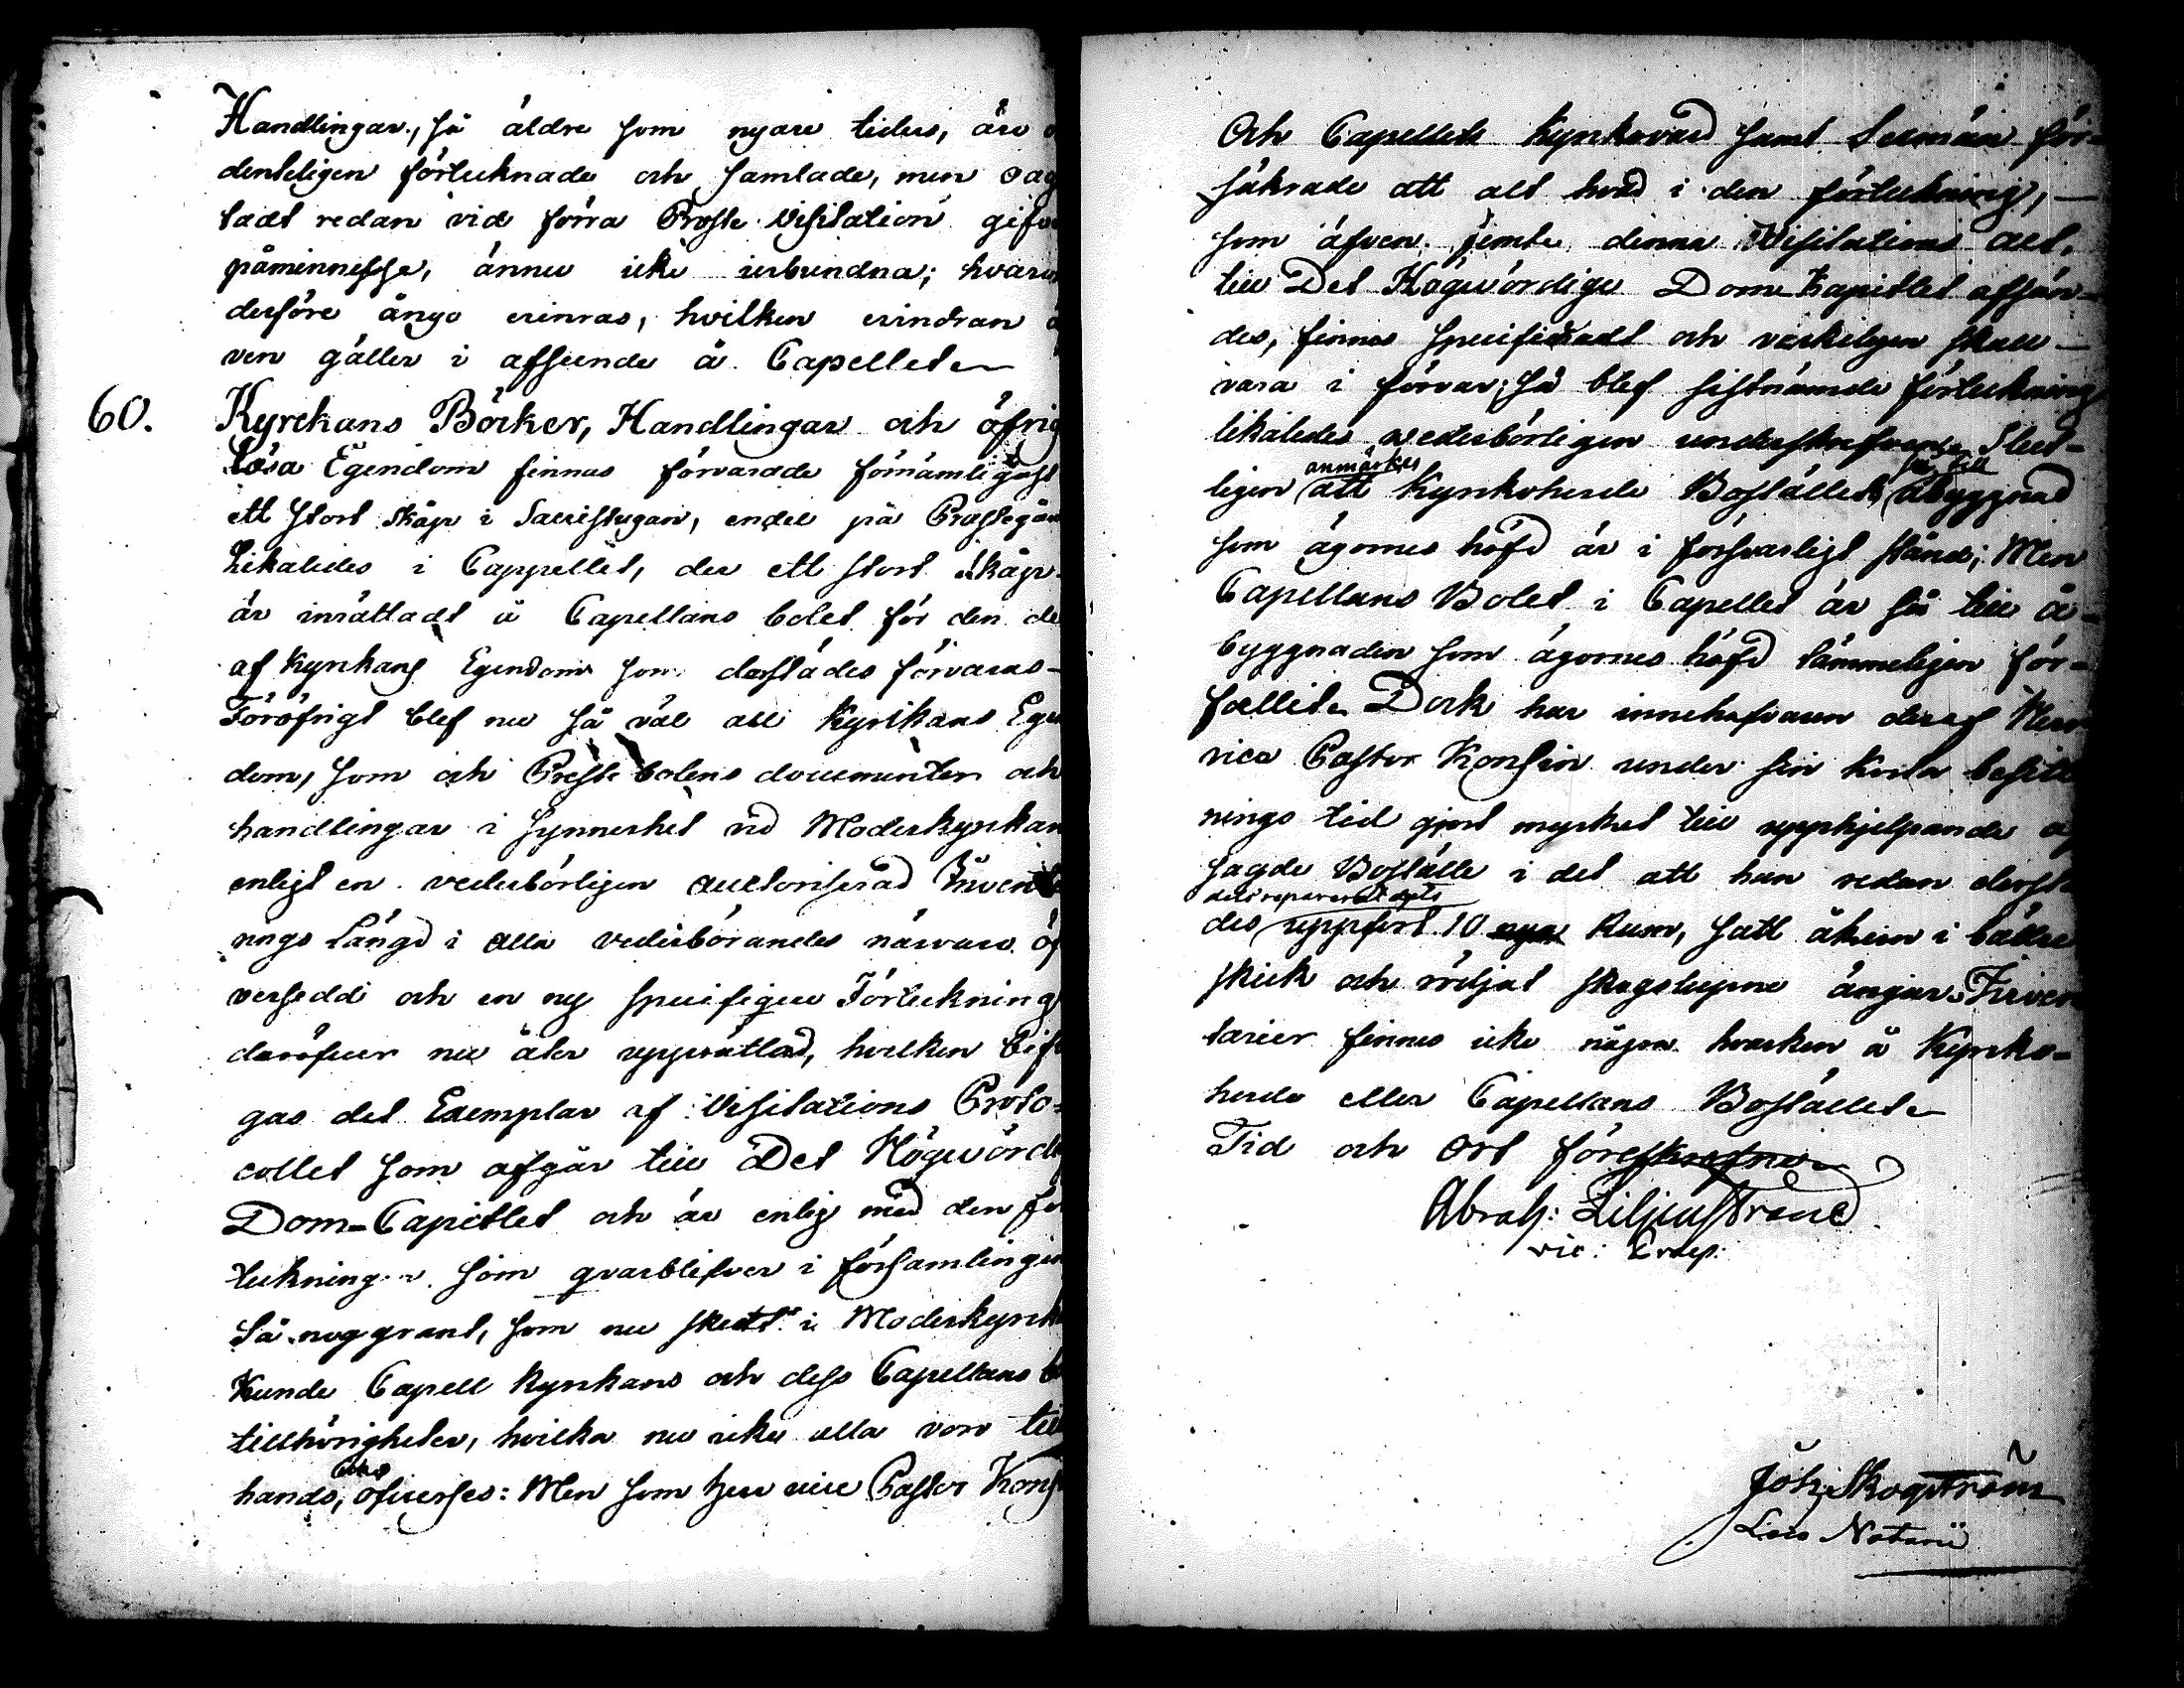 Handlingar, så äldre som nyare tiders, äro o
denteligen förtecknade och samlade, men oag
tadt redan vid förra Prosts Visitation gifve
påminnelse, ännu icke inbundna; hvarom
derföre ånyo erinras, hvilken erindran ä
ven gäller i afseende å Capellet.
60. Kyrckans Böcker, Handlingar och öfrig
Lösa Egendom finnas förvarade förnämligast
ett stort skåp i Sacristugan, endel på Prästegår
Likaledes i Cappellet, der ett stort skåp
är inrättadt å Capellans bolet för den de
af Kyrkans Egendom som derstädes förvaras-
Föröfrigt blef nu så väl all Kyrkans Egen
dom, som och Preste bolens documenter och
handlingar i synnerhet vid Moderkyrkan
enligt en vederbörligen auctoriserad Invente
rings Längd i alla vederbörandes närvaro öf
versedd och en ny specifique Förteckning
daröfver nu åter upprättad, hvilken bifo
gas det Exemplar af Visitations Proto-
collet som afgår till Det Högvördi
Dom-Capitlet och är enlig med den för
teckning som qvarblifver i församlingen
Så noggrant, som nu skedt i Moderkyrk
kunde Capell kyrkans och dess Capellans b
tillhörigheter, hvilka nu icke alla voro till
hands, öfverses: Men som herr vice Pastor Kons
Och Capellets Kyrkovärd samt Sexmän för-
säkrade att alt hvad i den förteckning,
som äfven jemte denna Visitations act,
till Det Högvördige Dom-Kapitlet afsän-
des, finnes specificeradt och verkeligen skall
vara i förvar; så blef sistnämde förteckning
likaledes vederbörligen underskrefven. Slut-
anmärkes så till
ligen att Kyrkoherde Boställets åbyggnad
som ägornes häfd är i försvarligt stånd; Men
Capellans Bolet i Capellet är så till å-
byggnaden som ägornes häfd tämmeligen för-
fallit. Dock har innehafvaren deraf Herr
vice Pastor Konsin under sin korta besitt
nings tid gjort mycket till upphjelpande af
sagde Boställe i det att han redan derstä
dels reparerat dels
des uppfört 10 Rum, satt åkern i bättre
skick och rödjat skogslupne ängar. Inven
tarier finnes icke några hvarken å Kyrko-
herde eller Capellans Bostället.
Tid och Ort föreskrefne
Abrah: Liljenstrand
vic: Praep:
Joh: Skogström
Loco Notarii